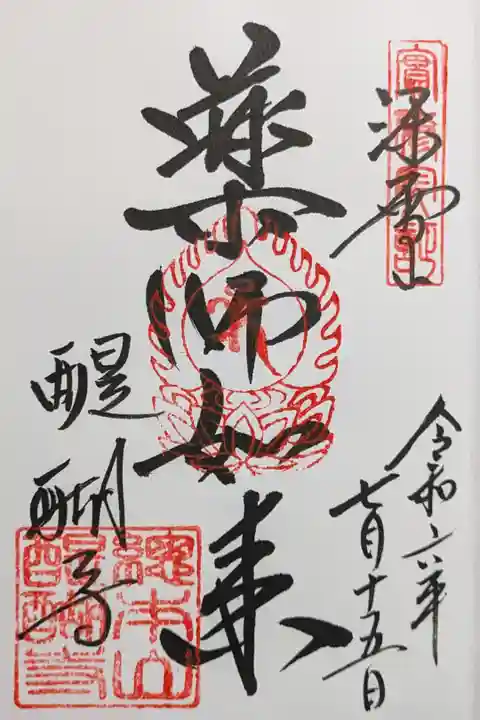 深雪山
令和六年
七月十五日
薬師如来
醍醐寺
總本山
醍醐寺